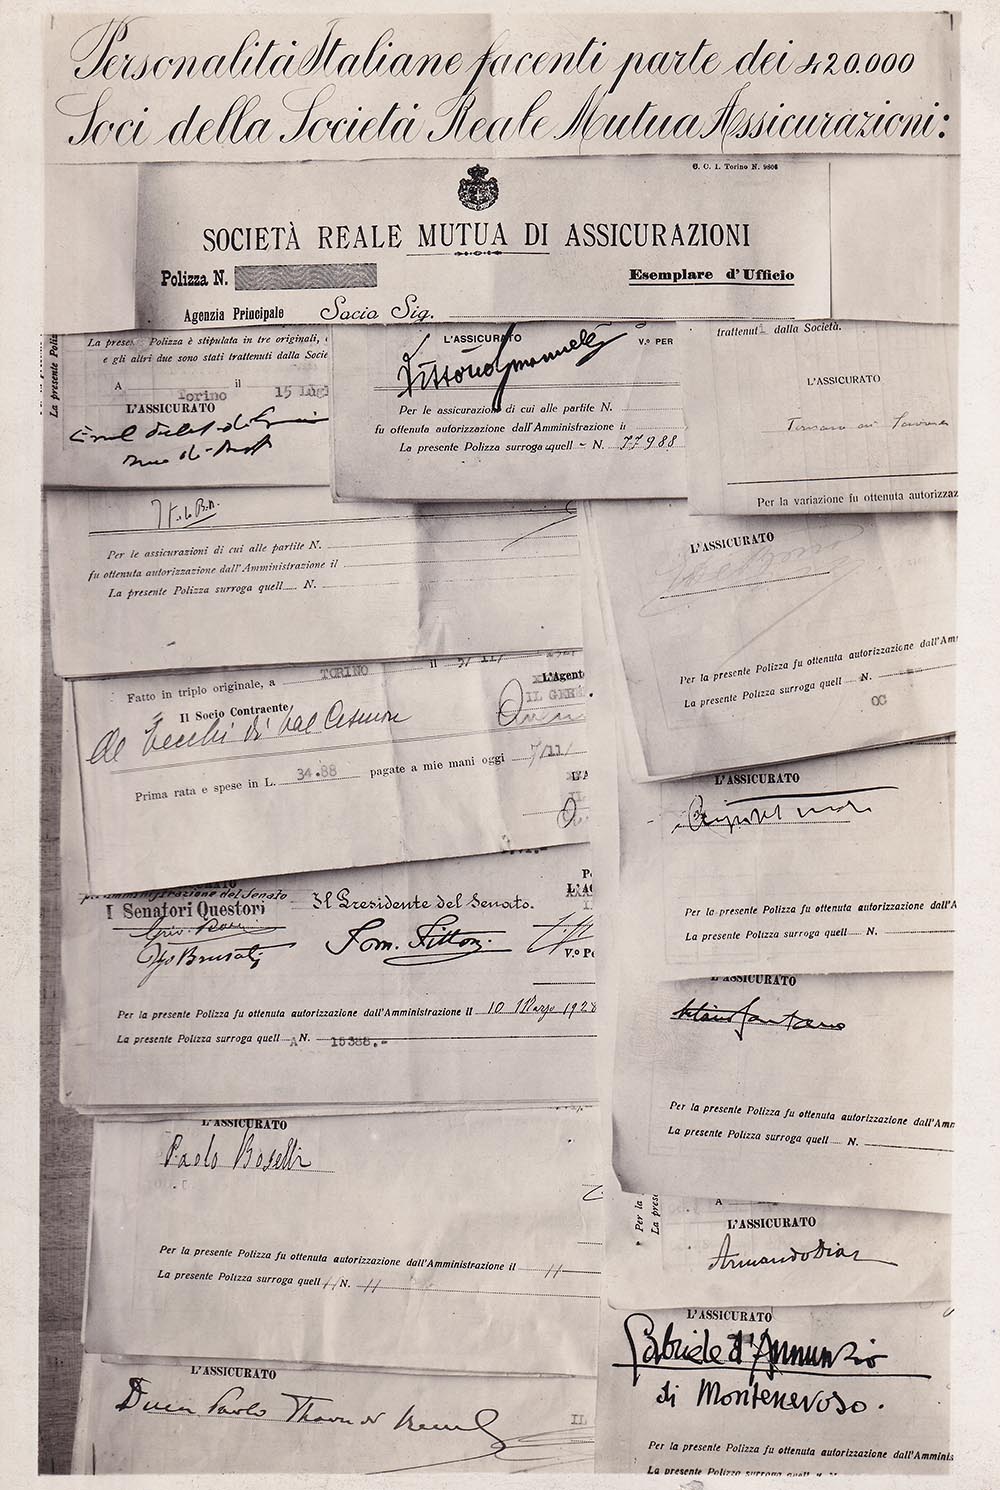 Personalità Italiane facenti parte dei 420.000
Soci della Società Reale Mutua Assicurazioni:
G. C. I. Torino N. 9806
SOCIETÀ REALE MUTUA DI ASSICURAZIONI
Polizza N.
Esemplare d'Ufficio
Agenzia Principale Socia Sig.
La presente Polizia
La presen Polizza è stipulata in tre originali,
e gli altri due sono stati trattenuti dalla Socie
A Torino il 15 Lugl
L'ASSICURATO
L'ASSICURATO
V.º PER
Vittorio Emanuele
Per le assicurazioni di cui alle partite N.
fu ottenuta autorizzazione dall'Amministrazione il
La presente Polizza surroga quell N. 77988
trattenuti dalla Società.
L'ASSICURATO
Per la variazione fu ottenuta autorizzaz
Per le assicurazioni di cui alle partite N.
fu ottenuta autorizzazione dall'Amministrazione il
La presente Polizza surroga quell N.
L'ASSICURATO
Per la presente Polizza fu ottenuta autorizzazione dall'Am
La presente Polizza surroga quell N.
OC
Fatto in triplo originale, a TORINO il
Il Socio Contraente
L'Agente
IL GER
De Vecchi di Val Cismon
Prima rata e spese in L. 34.88 pagate a mie mani oggi 7/11/
L'ASSICURATO
Per la presente Polizza fu ottenuta autorizzazione dall'A
La presente Polizza surroga quell N.
amministrazione del Senato
I Senatori Questori
Il Presidente del Senato.
Ugo Brusati
Tom. Tittoni
V.º Pe
Per la presente Polizza fu ottenuta autorizzazione dall'Amministrazione il 10 Marzo 1928
La presente Polizza surroga quell A N. 15388.-
L'ASSICURATO
Per la presente Polizza fu ottenuta autorizzazione dall'Amn
La presente Polizza surroga quell N.
L'ASSICURATO
Paolo Boselli
Per la presente Polizza fu ottenuta autorizzazione dall'Amministrazione il 11
La presente Polizza surroga quell 11 N. 11
Per la
La prese
A
L'ASSICURATO
Armando Diaz
L'ASSICURATO
Gabriele d'Annunzio
di Montenevoso.
Per la presente Polizza fu ottenuta autorizzazione dall'Amminis
La presente Polizza surroga quell N.
L'ASSICURATO
Duca Paolo Thaon di Revel
IL